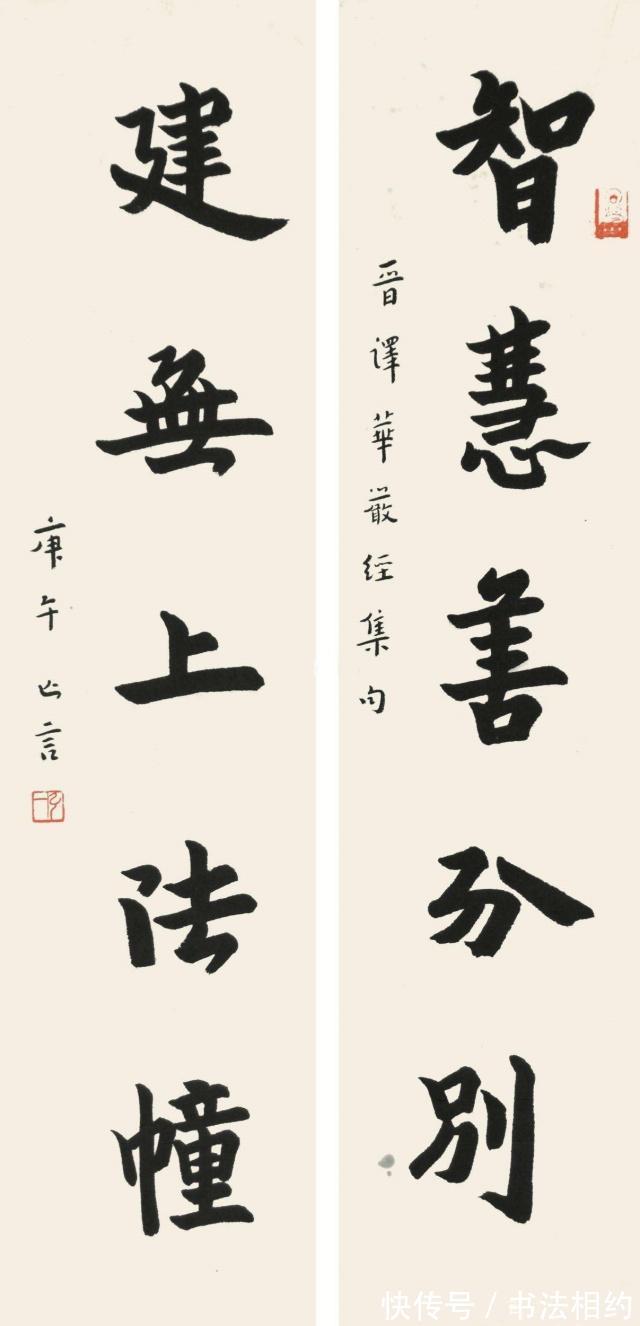 智慧善分別
晋譯華嚴經集句
建無上法幢
庚午
言
快传号 / 书法相约